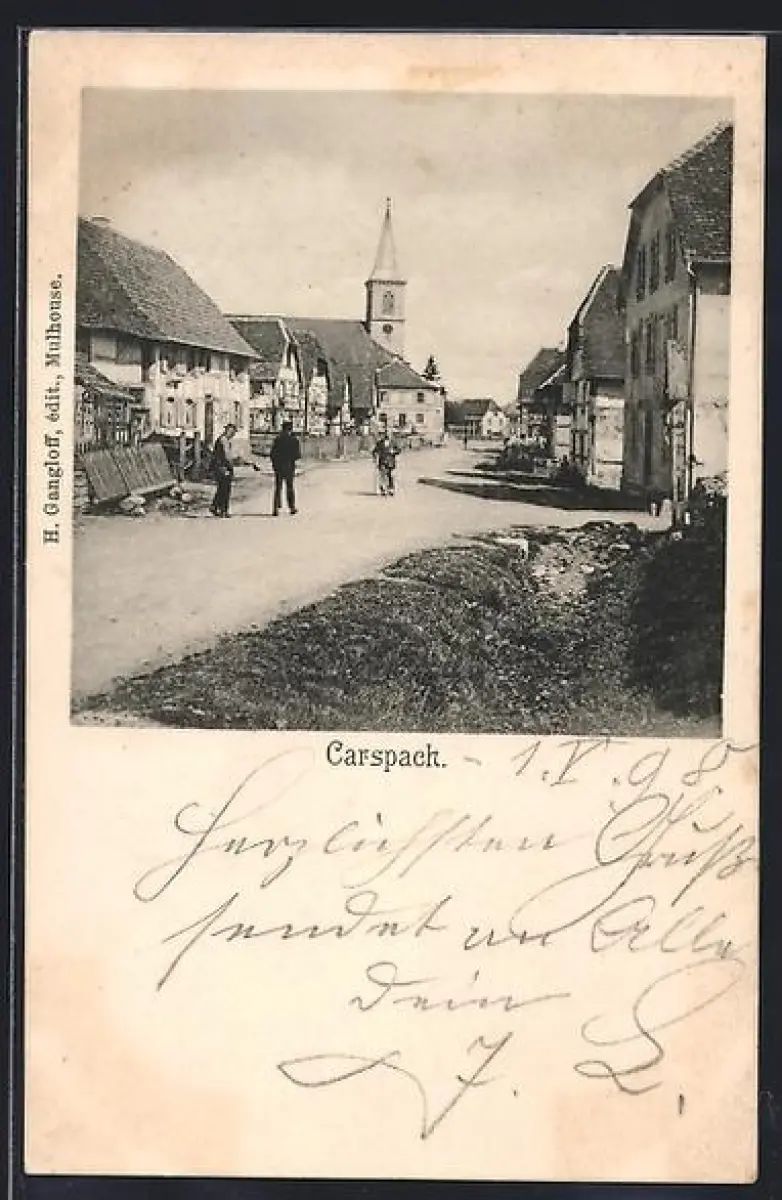 H. Gangloff, édit., Mulhouse.
Carspach. - 1.V.98
Herzlichsten Gruß
sendet an Alle
Dein
F. L.